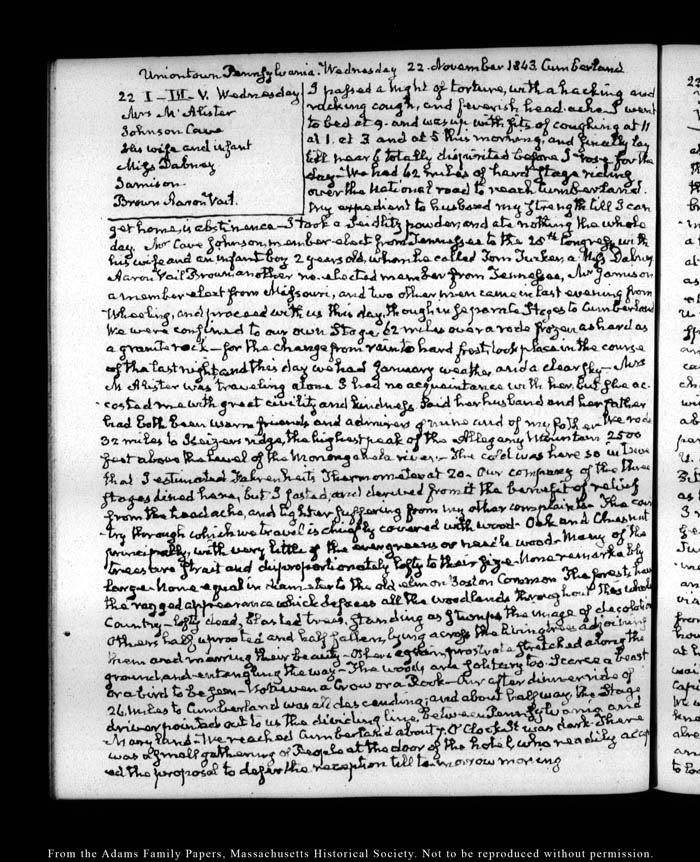 Uniontown Pennsylvania. Wednesday 22. November 1843. Cumberland
22 I_III_V. Wednesday
Mrs McAlister
Johnson Cave
his wife and infant
Miss Dabney
Jamison
Brown Aaron Vail.
I passed a night of torture, with a hacking and
racking cough, and feverish head-ache. I went
to bed at 9. and was up with fits of coughing at 11
at 1. at 3 and at 5 this morning, and finally lay
till near 6 totally dispirited before I rose for the
day. We had 62 miles of hard stage riding
over the National road to reach Cumberland.
My expedient to husband my strength till I can
get home, is abstinence. I took a Seidlitz powder, and ate nothing the whole
day. Mr Cave Johnson, member elect from Tennessee to the 28th Congress, with
his wife and an infant boy 2 years old, whom he called Tom Tucker, a Miss Dabney
Aaron Vail Brown another re-elected member from Tennessee, Mr Jamison
a member elect from Missouri, and two other men came in last evening from
Wheeling, and proceed with us this day, though in separate Stages to Cumberland
We were confined to our own Stage 62 miles over a rode frozen as hard as
a granite rock—for the change from rain to hard frost, took place in the course
of the last night, and this day we had January weather and a clear sky—Mrs
McAlister was traveling alone I had no acquaintance with her, but she ac-
costed me with great civility and kindness. Said her husband and her father
had both been warm friends and admirers of mine and of my father. We rode
32 miles to Keizers ridge, the highest peak of the Allegany Mountain 2500
feet above the level of the Monongahela river. The cold was here so intense
that I estimated Fahrenheits Thermometer at 20. Our company of the three
stages dined here, but I fasted, and derived from it the benefit of relief
from the headache, and lighter suffering from my other complaints. The coun
try through which we travel is chiefly covered with wood. Oak and Chesnut
principally, with very little of the evergreens or needle wood. Many of the
trees are strait and disproportionately lofty to their size. None remarkably
large. None equal in diameter to the old elm on Boston Common. The forests have
the ragged appearance which defaces all the woodlands throughout this whole
Country—lofty dead, blasted trees, standing as stumps the image of desolation
Others half uprooted and half fallen, lying across the living trees adjoining
them and marring their beauty. Others again, prostrate stretched along the
ground, and entangling the way. The woods are solitary too. Scarce a beast
or a bird to be seen. Not even a Crow or a Rook. Our after dinner ride of
26 miles to Cumberland was all descending; and about half way, the Stage
driver pointed out to us the dividing line, between Pennsylvania and
Maryland. We reached Cumberland about 7. O'Clock. It was dark. There
was a small gathering of People at the door of the hotel, who readily accept
ed the proposal to defer the reception till to-morrow morning
From the Adams Family Papers, Massachusetts Historical Society. Not to be reproduced without permission.